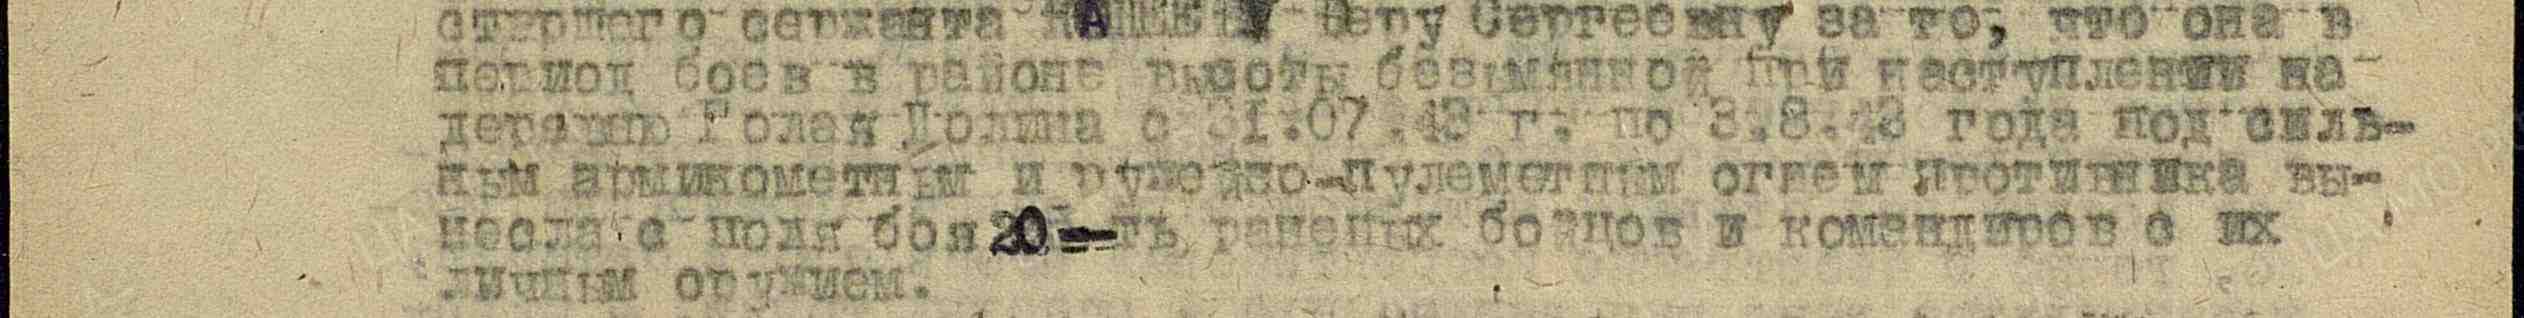 старшего сержанта Веру Сергеевну за то, что она в
период боев в районе высоты безымянной при наступлении на
деревню Голая Долина с 31.07.43 г. по 3.8.43 года под силь-
ным армикометным и ружейно-пулеметным огнем противника вы-
несла с поля боя 20 раненых бойцов и командиров с их
личным оружием.